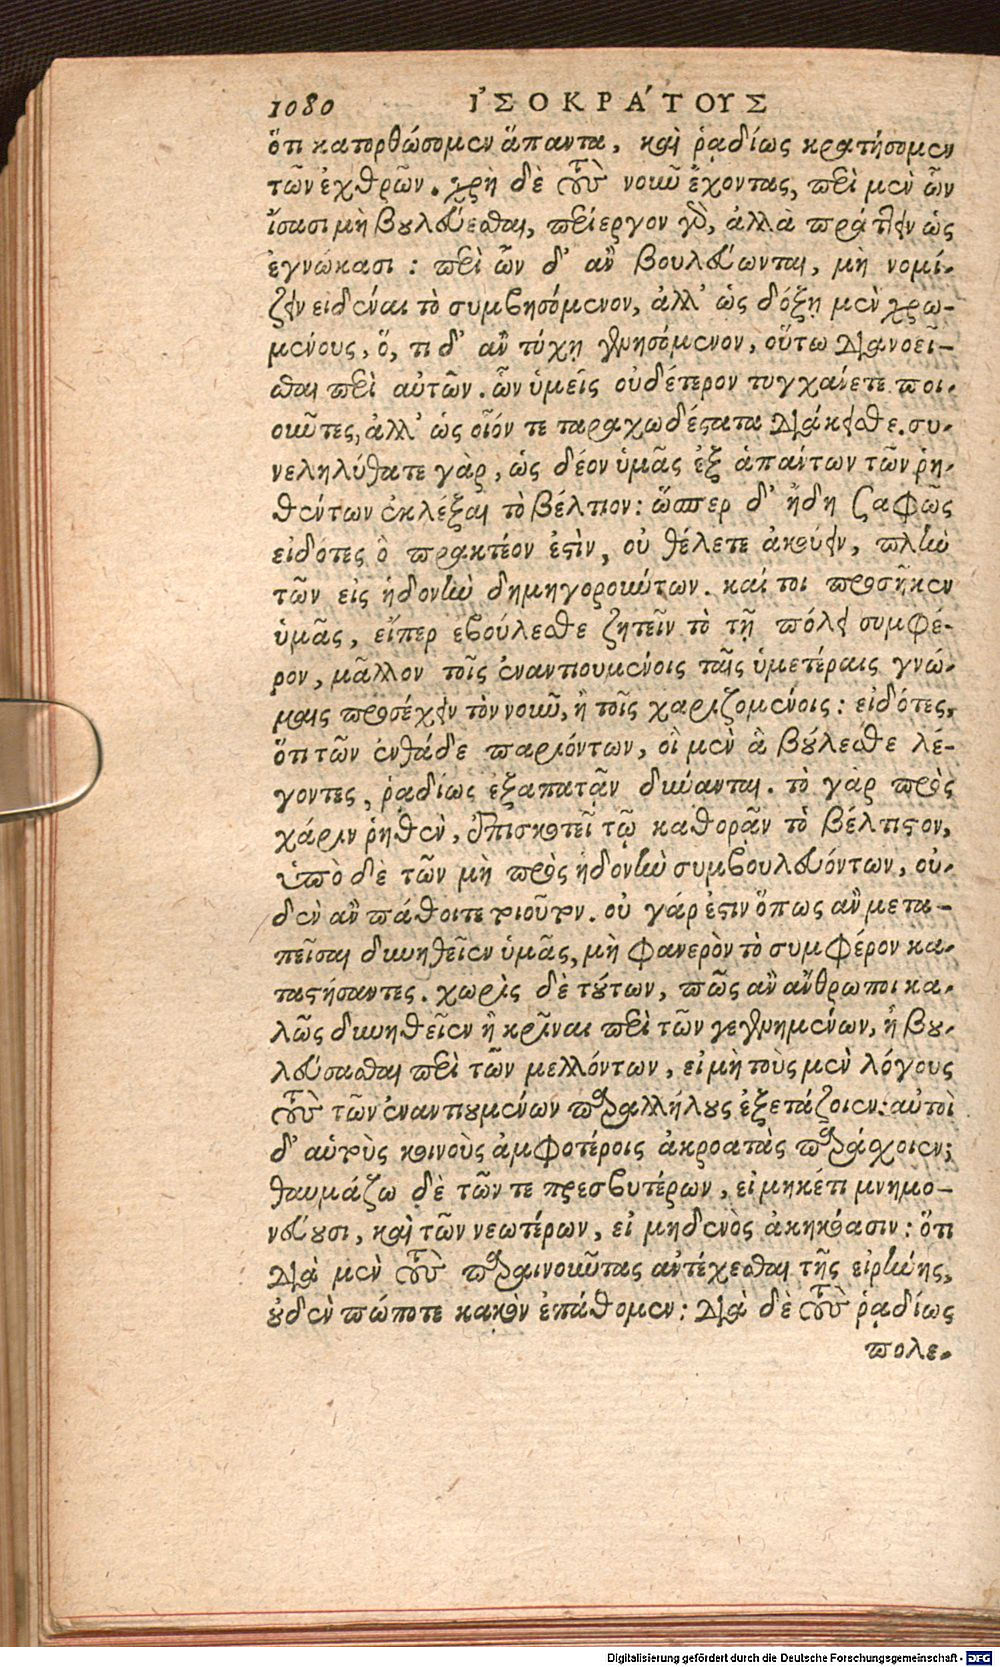 1080 ἸΣΟΚΡΆΤΟΥΣ
ὅτι κατορθώσομεν ἅπαντα, καὶ ῥᾳδίως κρατήσομεν
τῶν ἐχθρῶν. χρὴ δὲ τοὺς νοῦν ἔχοντας, περὶ μὲν ὧν
ἴσασι μὴ βουλεύεσθαι, περίεργον γὰρ, ἀλλὰ πράττειν ὡς
ἐγνώκασι : περὶ ὧν δ' ἂν βουλεύωνται, μὴ νομί-
ζειν εἰδέναι τὸ συμβησόμενον, ἀλλ' ὡς δόξῃ μὲν χρω-
μένους, ὅ, τι δ' ἂν τύχῃ γενησόμενον, οὕτω διανοεῖ-
σθαι περὶ αὐτῶν. ὧν ὑμεῖς οὐδέτερον τυγχάνετε ποι-
οῦντες, ἀλλ' ὡς οἷόν τε ταραχωδέστατα διάκεισθε. συ-
νεληλύθατε γὰρ, ὡς δέον ὑμᾶς ἐξ ἁπάντων τῶν ῥη-
θέντων ἐκλέξαι τὸ βέλτιον: ὥσπερ δ' ἤδη σαφῶς
εἰδότες ὃ πρακτέον ἐστὶν, οὐ θέλετε ἀκούειν, πλὴν
τῶν εἰς ἡδονὴν δημηγορούντων. καίτοι προσῆκεν
ὑμᾶς, εἴπερ ἐβούλεσθε ζητεῖν τὸ τῇ πόλει συμφέ-
ρον, μᾶλλον τοῖς ἐναντιουμένοις ταῖς ὑμετέραις γνώ-
μαις προσέχειν τὸν νοῦν, ἢ τοῖς χαριζομένοις: εἰδότες,
ὅτι τῶν ἐνθάδε παριόντων, οἱ μὲν ἃ βούλεσθε λέ-
γοντες, ῥᾳδίως ἐξαπατᾷν δύνανται. τὸ γὰρ πρὸς
χάριν ῥηθὲν, ἐπισκοτεῖ τῷ καθορᾷν τὸ βέλτιστον,
ὑπὸ δὲ τῶν μὴ πρὸς ἡδονὴν συμβουλευόντων, οὐ-
δὲν ἂν πάθοιτε τοιοῦτον. οὐ γάρ ἐστιν ὅπως ἂν μετα-
πεῖσαι δυνηθεῖεν ὑμᾶς, μὴ φανερὸν τὸ συμφέρον κα-
ταστήσαντες. χωρὶς δὲ τούτων, πῶς ἂν ἄνθρωποι κα-
λῶς δυνηθεῖεν ἢ κρῖναι περὶ τῶν γεγενημένων, ἢ βου-
λεύσασθαι περὶ τῶν μελλόντων, εἰ μὴ τοὺς μὲν λόγους
τοὺς τῶν ἐναντιουμένων παραλλήλους ἐξετάζοιεν: αὐτοὶ
δ' αὑτοὺς κοινοὺς ἀμφοτέροις ἀκροατὰς παράσχοιεν;
θαυμάζω δὲ τῶν τε πρεσβυτέρων, εἰ μηκέτι μνημο-
νεύουσι, καὶ τῶν νεωτέρων, εἰ μηδενὸς ἀκηκόασιν: ὅτι
διὰ μὲν τοὺς παραινοῦντας ἀντέχεσθαι τῆς εἰρήνης,
οὐδὲν πώποτε κακὸν ἐπάθομεν: διὰ δὲ τοὺς ῥᾳδίως
πολε-
Digitalisierung gefördert durch die Deutsche Forschungsgemeinschaft - DFG